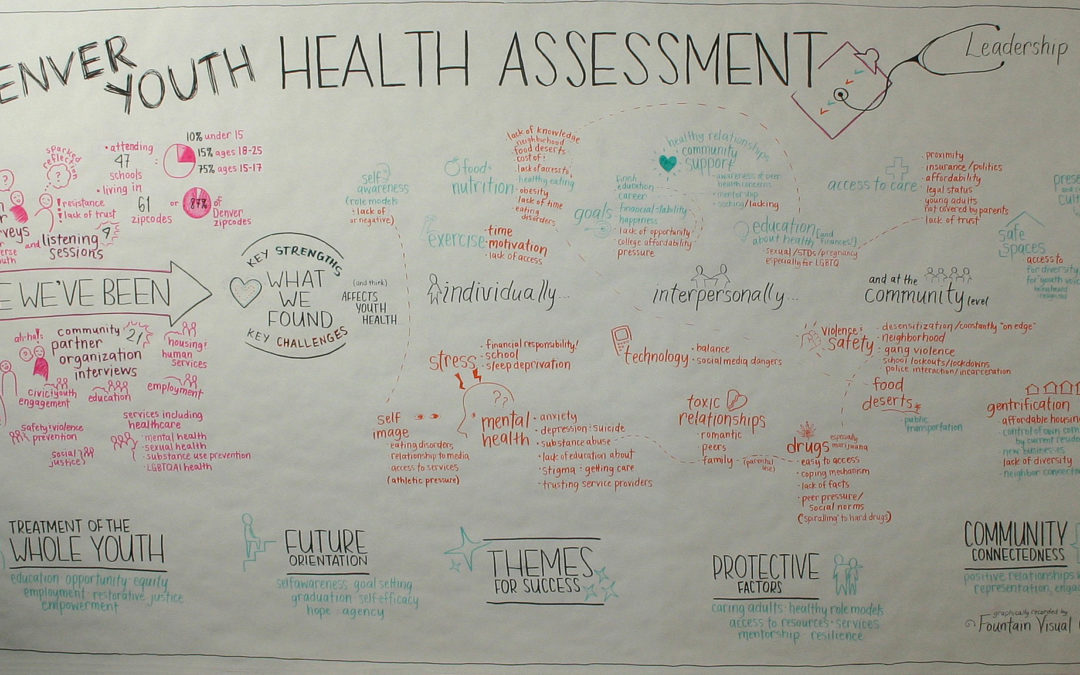 ENVER
YOUTH HEALTH ASSESSMENT
Leadership
sparked
reflection
?
?
• attending
47
schools
• living in
61
zipcodes
10% under 15
15% ages 18-25
75% ages 15-17
or
87%
of
Denver
zipcodes
! resistance
! lack of trust
veys
and listening
sessions
9
E WE'VE BEEN
KEY STRENGTHS
WHAT
WE
FOUND
KEY CHALLENGES
(and think)
AFFECTS
YOUTH
HEALTH
ah-ha!
community
partner
organization
interviews
21
housing/
human
services
civic/youth
engagement
education
employment
safety/violence
prevention
social
justice
services including
healthcare
• mental health
• sexual health
• substance use prevention
• LGBTQAI health
self
awareness
(role models
• lack of
or negative)
food:
nutrition
lack of knowledge
neighborhood
food deserts
cost of:
lack of access to
healthy eating
• obesity
lack of time
eating
disorders
exercise
• time
• motivation
• lack of access
individually...
stress
• financial responsibility!
• school
• sleep deprivation
self
image
• eating disorders
relationship to media
access to services
(athletic pressure)
??
mental
health
• anxiety
• depression: suicide
• substance abuse
• lack of education about
• stigma - getting care
• trusting service providers
healthy relationships
community
support
• awareness of peer
health concerns
• mentorship
• seeking/lacking
goals
finish
education
career
financial stability
happiness
lack of opportunity
college affordability
pressure
education
about health (and finances!)
• sexual/STDs/pregnancy
especially for LGBTQ
interpersonally...
technology
• balance
• social media dangers
toxic
relationships
• romantic
peers
family - (parental
use)
access to care
proximity
insurance/politics
affordability
legal status
young adults
not covered by parents
lack of trust
safe
spaces
• access to
for diversity
for youth
and at the
community level
violence:
safety
• desensitization/constantly "on edge"
• neighborhood
• gang violence
school lockouts/lockdowns
police interaction/incarceration
food
deserts
• public
transportation
drugs
especially
marijuana
• easy to access
• coping mechanism
• lack of facts
• peer pressure/
social norms
("spiralling" to hard drugs)
gentrification
affordable
by current
lack of diversity
neighbor
TREATMENT OF THE
WHOLE YOUTH
education opportunity equity
employment restorative justice
empowerment
FUTURE
ORIENTATION
self awareness goal setting
graduation self efficacy
hope · agency
THEMES
FOR SUCCESS
PROTECTIVE
FACTORS
caring adults · healthy role models
access to resources · services
mentorship · resilience
COMMUNITY
CONNECTEDNESS
positive relationships
representation,
graphically recorded by
Fountain Visual